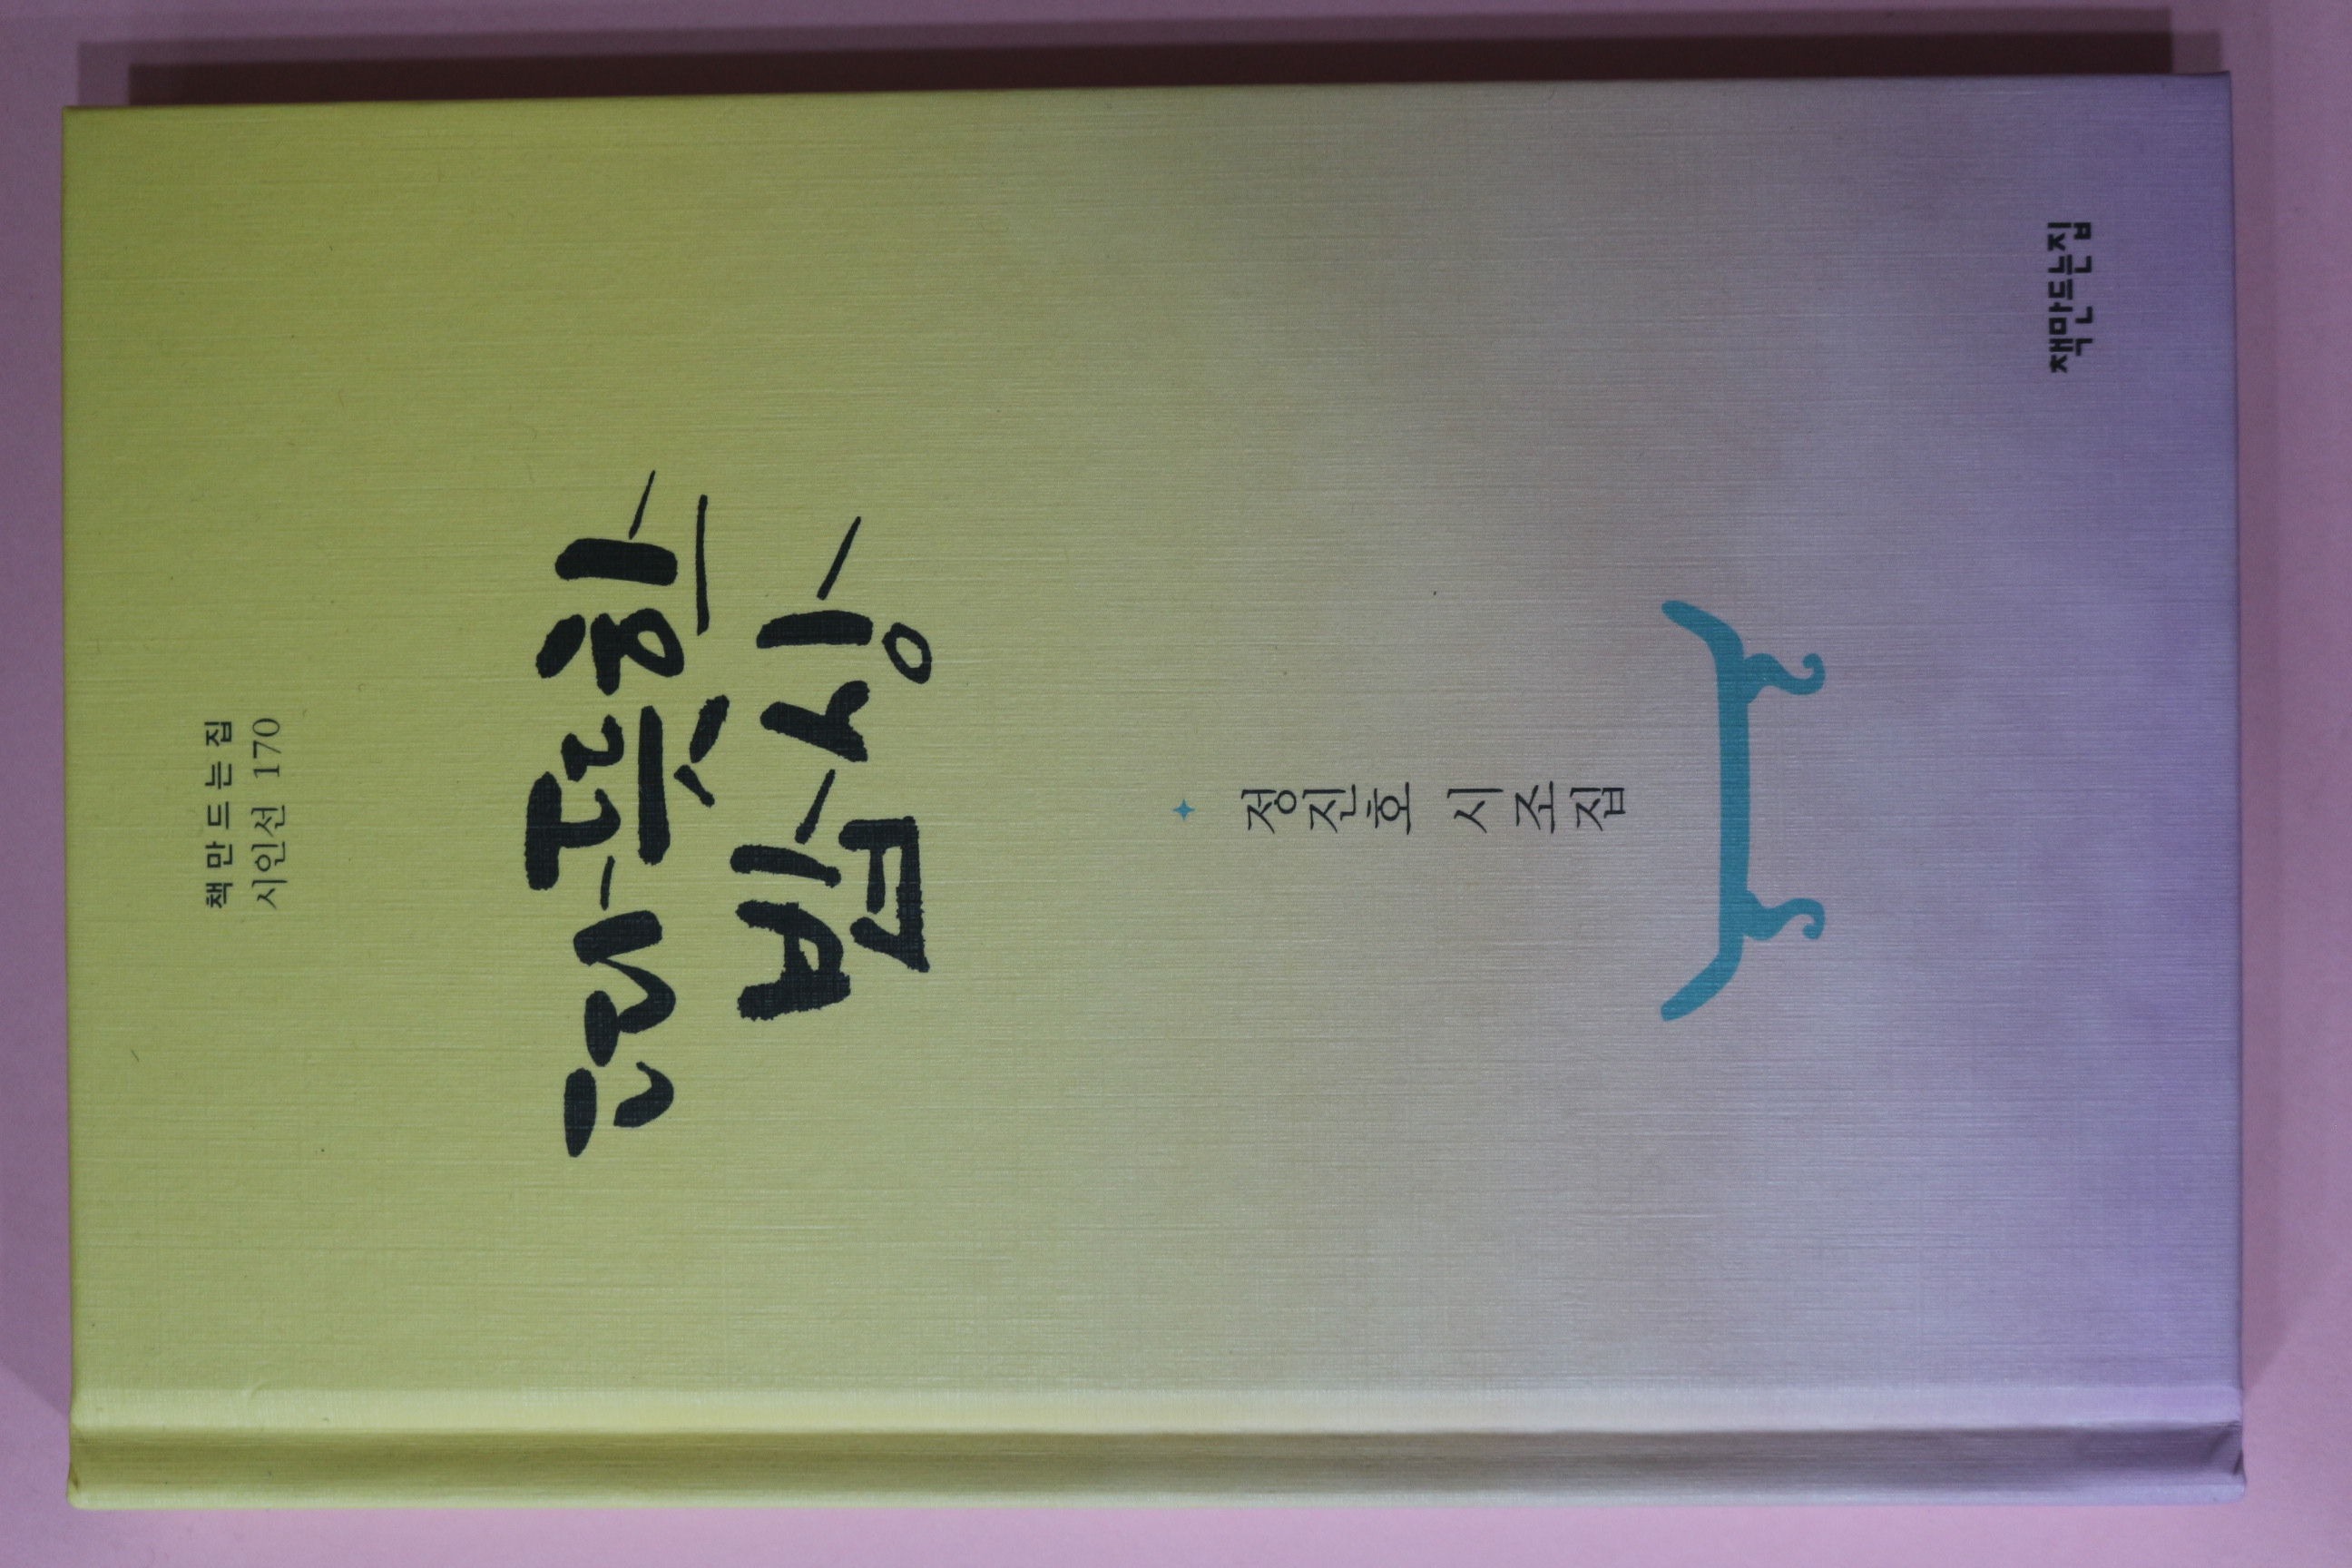 책만드는집
시인선 170
따뜻한
밥상
정진호 시조집
책만드는집